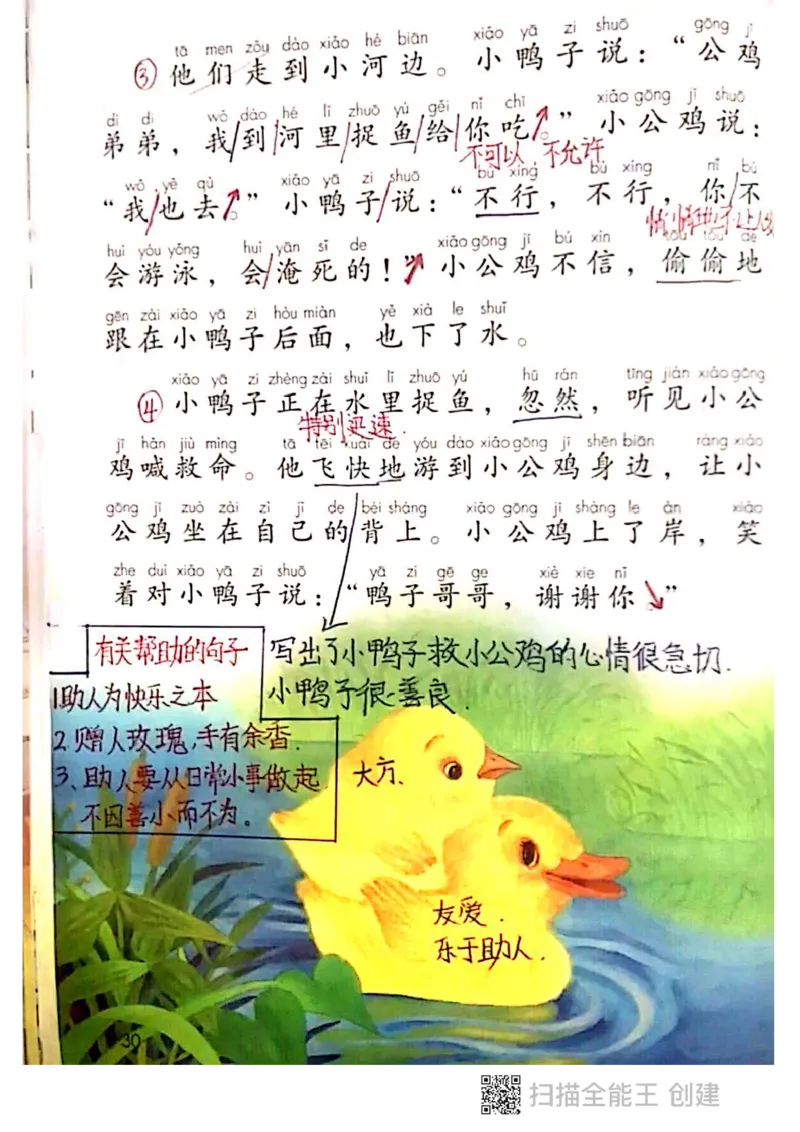 tā men zǒu dào xiǎo hé biān xiǎo yā zi shuō gōng jī
③他们走到小河边。小鸭子说：“公鸡
dì di wǒ dào hé lǐ zhuō yú gěi nǐ chī xiǎo gōng jī shuō
弟弟，我/到/河里/捉鱼/给/你吃。”小公鸡说：
不可以 不允许
wǒ yě qù xiǎo yā zi shuō bù xíng bù xíng nǐ bú
“我/也去。”小鸭子/说：“不行，不行，你/不
huì yóu yǒng huì yān sǐ de xiǎo gōng jī bú xìn tōu tōu de
会游泳，会/淹死的！”小公鸡不信，偷偷地
gēn zài xiǎo yā zi hòu miàn yě xià le shuǐ
跟在小鸭子后面，也下了水。
xiǎo yā zi zhèng zài shuǐ lǐ zhuō yú hū rán tīng jiàn xiǎo gōng
④小鸭子正在水里捉鱼，忽然，听见小公
特别迅速.
jī hǎn jiù mìng tā fēi kuài de yóu dào xiǎo gōng jī shēn biān ràng xiǎo
鸡喊救命。他飞快地游到小公鸡身边，让小
gōng jī zuò zài zì jǐ de bèi shàng xiǎo gōng jī shàng le àn xiào
公鸡坐在自己的背上。小公鸡上了岸，笑
zhe duì xiǎo yā zi shuō yā zi gē ge xiè xie nǐ
着对小鸭子说：“鸭子哥哥，谢谢你。”
有关帮助的句子
写出了小鸭子救小公鸡的心情很急切.
1助人为快乐之本
小鸭子很善良.
2.赠人玫瑰,手有余香.
3、助人要从日常小事做起.
大方.
不因善小而不为。
友爱.
乐于助人.
30
扫描全能王 创建